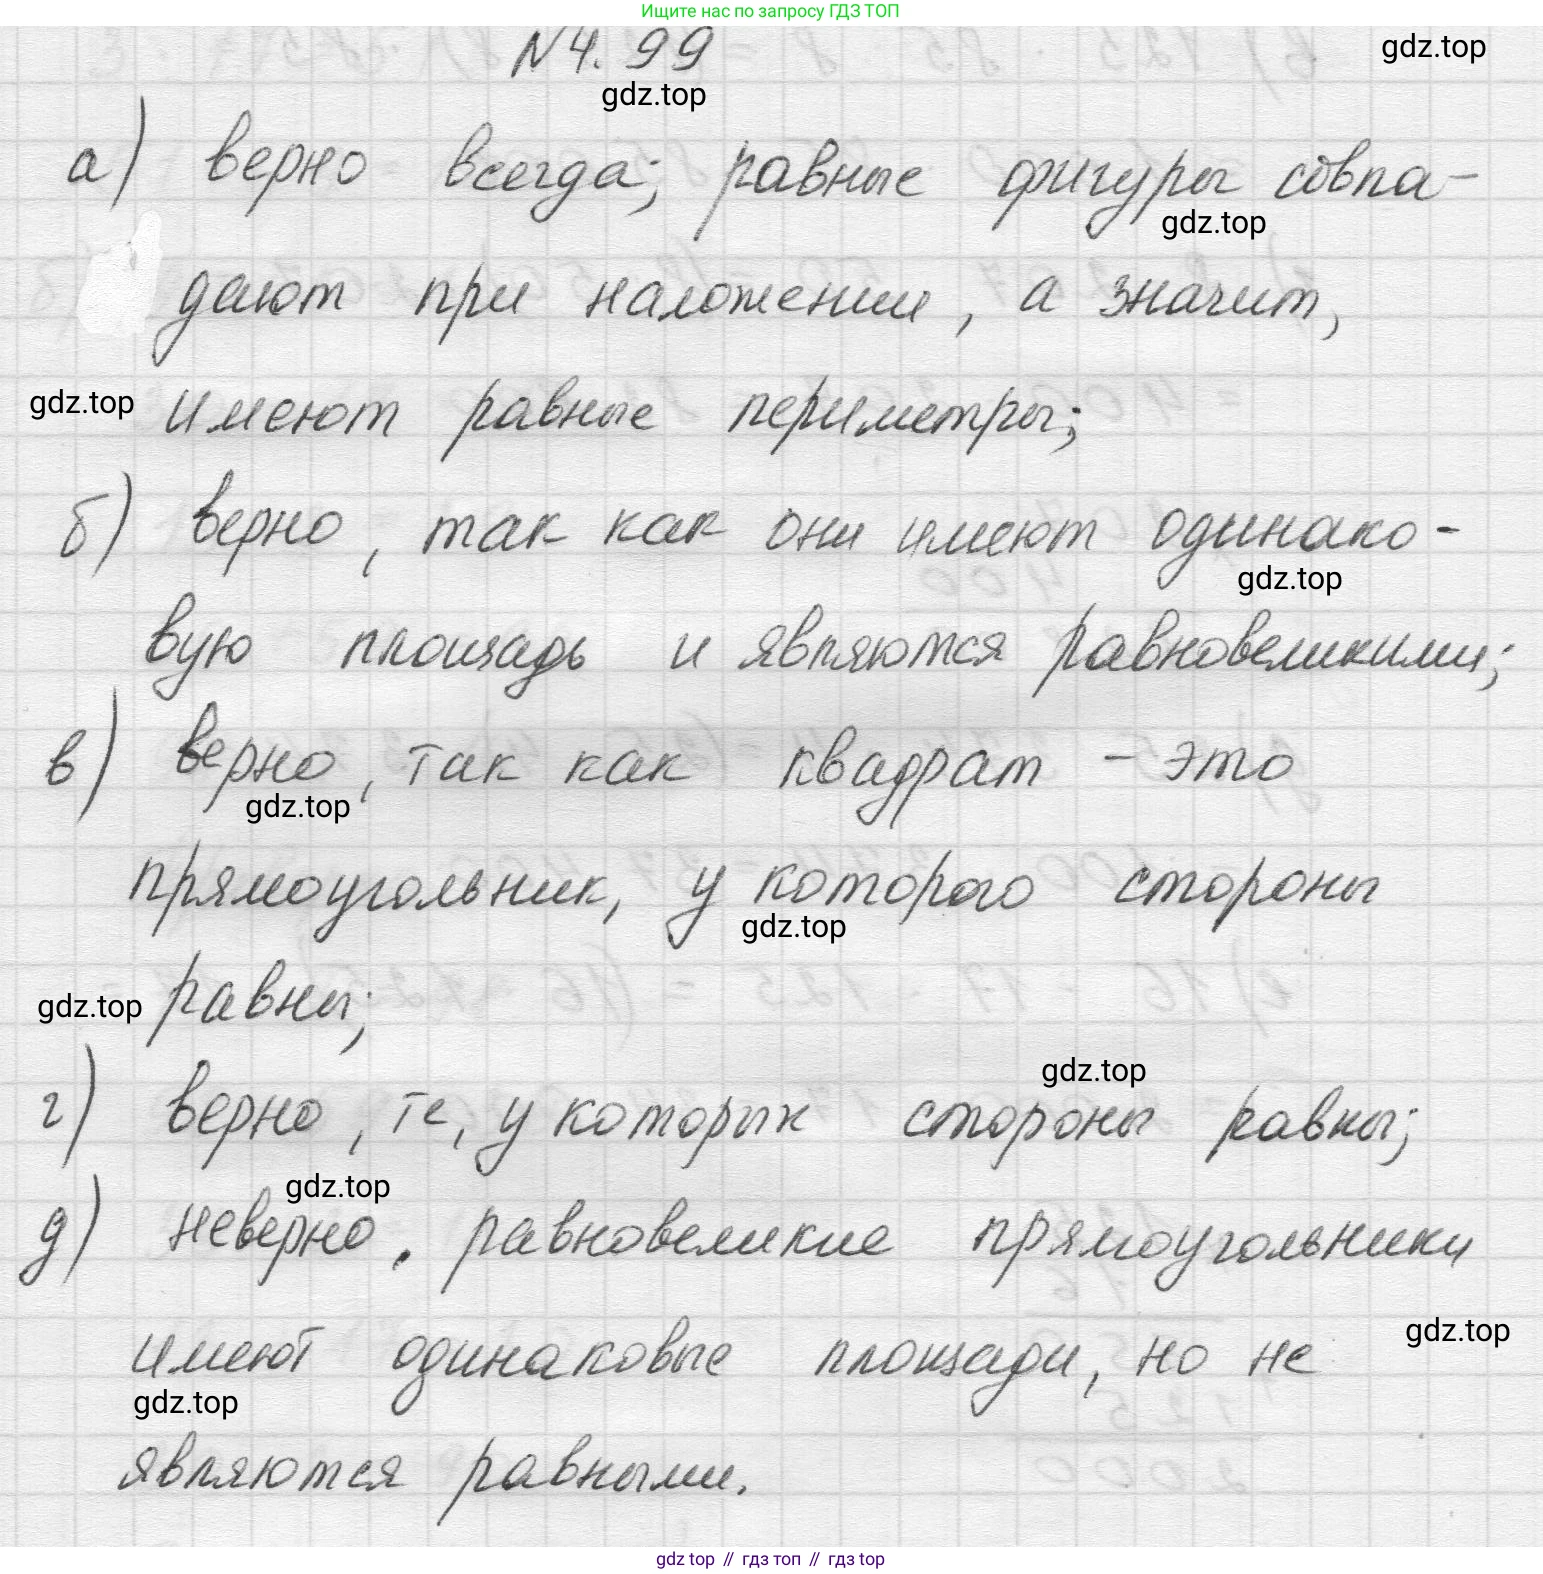 Ищите нас по запросу ГДЗ ТОП
№4.99
gdz.top
gdz.top
а) верно всегда; равные фигуры совпа-
gdz.top
дают при наложении, а значит,
gdz.top
имеют равные периметры;
б) верно, так как они имеют одинако-
gdz.top
вую площадь и являются равновеликими;
в) верно, так как квадрат - это
gdz.top
прямоугольник, у которого стороны
gdz.top
gdz.top
равны;
gdz.top
г) верно, те, у которых стороны равны;
gdz.top
д) неверно. равновеликие прямоугольники
gdz.top
имеют одинаковые площади, но не
gdz.top
являются равными.
gdz top // гдз топ // гдз top